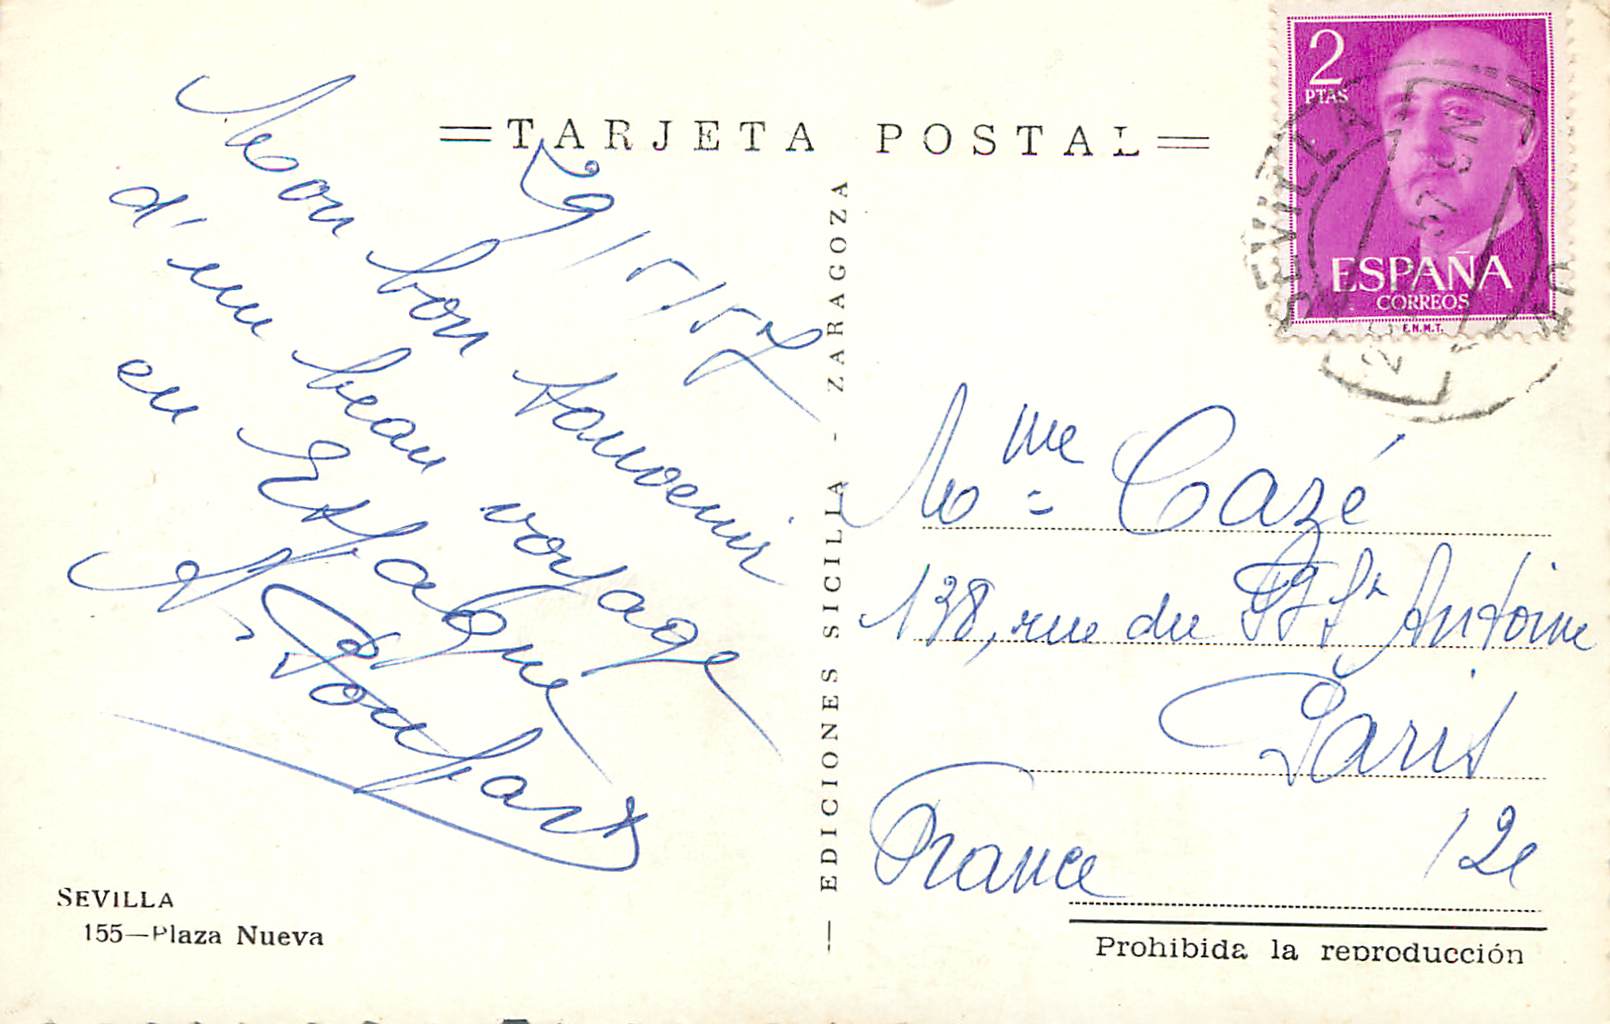 TARJETA POSTAL
29/5/57
Mon bon souvenir
d'un beau voyage
en Espagne
EDICIONES SICILIA - ZARAGOZA
SEVILLA
155—Plaza Nueva
2
PTAS
ESPAÑA
CORREOS
F.N.M.T.
SEVILLA
Mme Cazé
138, rue du Fg St Antoine
Paris
12e
France
Prohibida la reproducción